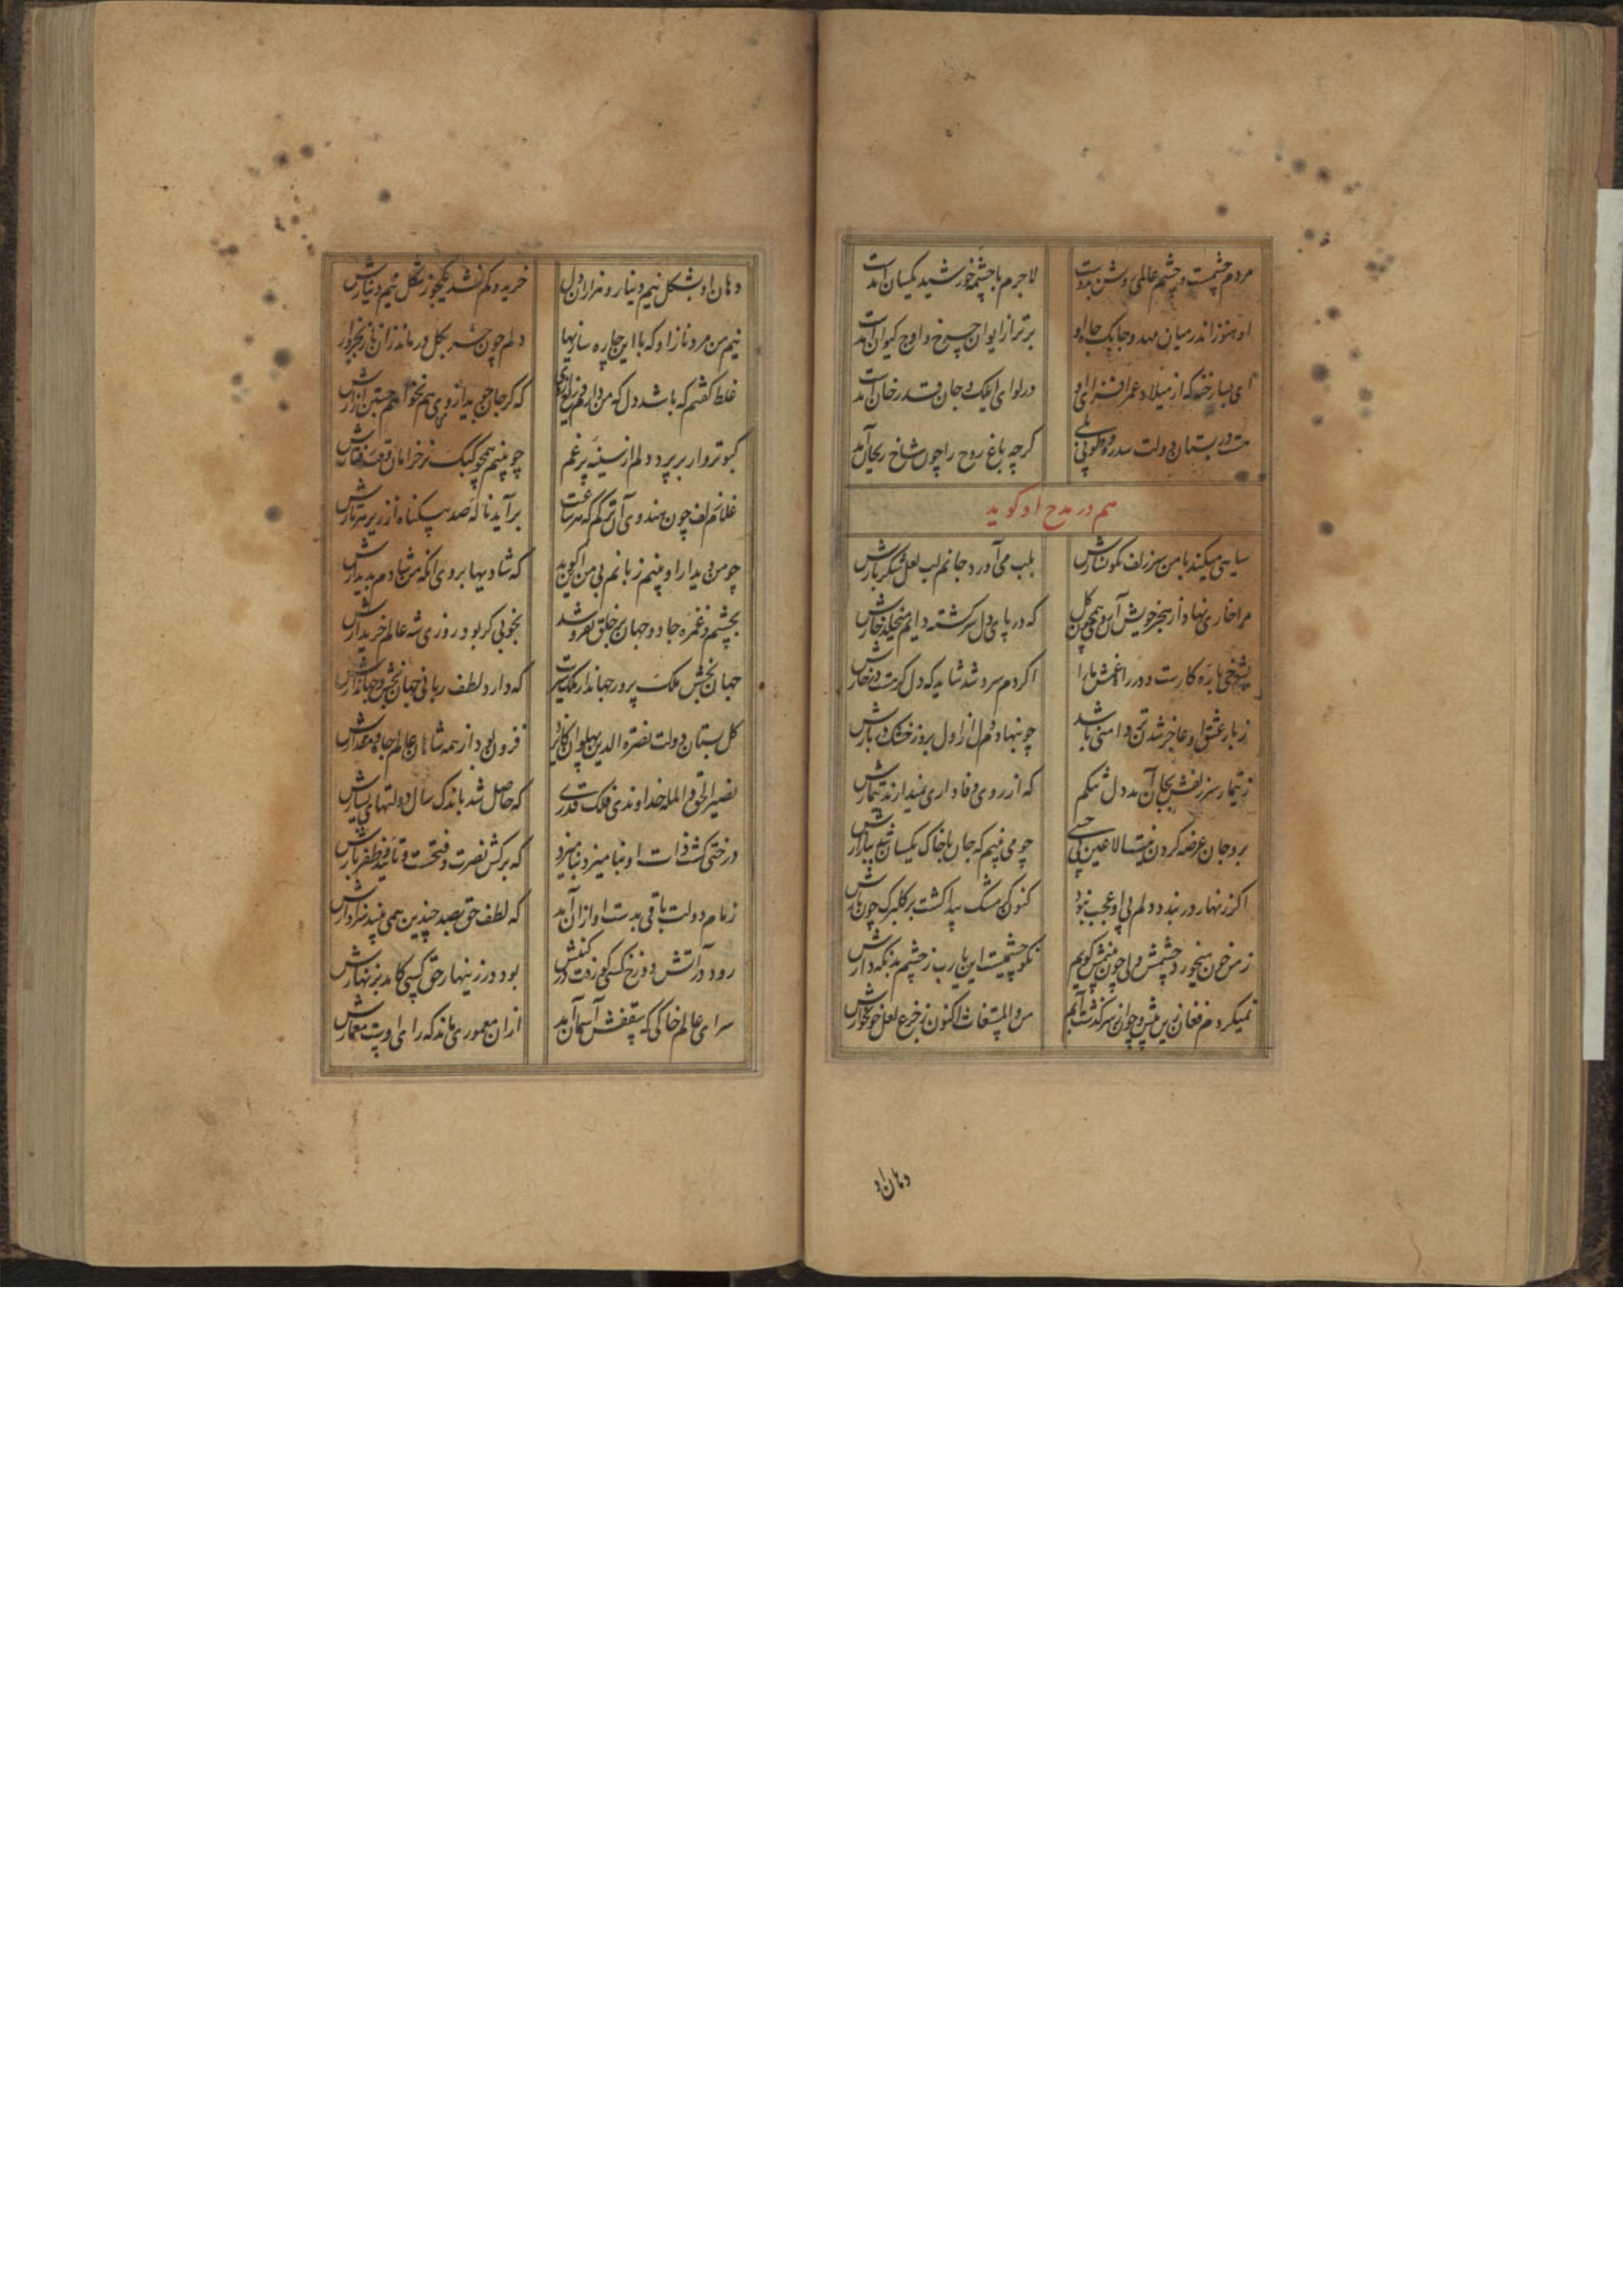 مردم چشمست و چشم عالمی روشن بدوست لاجرم با چشمه خورشید یکسان آمدست
او هنوز اندر میان مهد و جابک جاه او برتر از ایوان چرخ و اوج کیوان آمدست
ای بسا رخنه که از میلاد عمر افزای او در لوای ایلک و جان قدر خان آمدست
هست در بستان دولت سدره و طوبی بلی کرچه باغ روح را چون شاخ ریحان آمد
هم در مدح او کوید
سیاهی میکند با من سر زلف نکونسارش بلب می آورد جانم لب لعل شکربارش
مرا خاری نهاد از هجر خویش آن روی همچون کل که در پای دل سرکشته دایم میخلد خارش
بشوخی باره کارست و در را غمش ما را اکر دم سرد شد شاید که دل کرمست در
ز بار عشق او عاجز شدتن وامنی باشد چو ننهادم دل از اول بروز خشک در بارش
ز تیمار سر زلفش بجان آمد دل تنکم که از روی وفاداری نمیدارند تیمارش
برو جان عرضه کردن نیست الا عین بی چو می بینم که جان با خاک یکسان شد ببازارش
اکر زنهار در بندد دلم بی او عجب نبود کنون کز مشک پیدا کشت بر کلبرک چون
ز من خون میخورد چشمش ولی چون بینمش کویم نکو چشمیست این یارب ز چشم بد نکه دارش
نمیکردم فغان زین پیش و چون از سر کذشت آبم من و المستغاث اکنون ز جزع لعل خونخوارش
دهان او
دهان او بشکل نیم دینار و هزاران دل خرید و کم نشد یکجو ز شکل نیم دینارش
نیم من مرد ناز او که با این چاره سازیها دلم چون خر بکل درماند زان
غلط کفتم که باشد دل که من دارم که کر جان جوید از من هم نخواهم جستن آزارش
کبوتروار برپرد دلم از سینه پر غم چو بینم همچو کبک نر خرامان وقت رفتارش
غلام زلف چون هندوی آن ترکم که هر ساعت برآید ناله صد بیکناه از زیر هر تارش
چو من دیدار او بینم زبانم بی من این کوید که شادیها بروی آنکه من شادم بدیدارش
بچشم و غمزه جادو جهان بر خلق بفروشد بخوبی کر بود روزی شه عالم خریدارش
جهان بخش ملک پرور جهاندار ملک سیرت که دارد لطف ربانی جهان بخش و جهاندارش
کل بستان دولت نصرة الدین پهلوان کامد فزون بود از همه شاهان عالم جاه و مقدارش
نصیر الحق و المله خداوندی فلک قدری که حاصل شد باندک سال دولتهای بسیارش
درختی کشت ذات او بنامیزد بنامیزد که برکش نصرت و فتحست و تایید و ظفر بارش
زمام دولت باقی بدست او ازان آمد که لطف حق بصد چندین همی بیند سزاوارش
رود در آتش دوزخ کسی کو زفت در کینش بود در زینهار حق کسی کامد بزنهارش
سرای عالم خاکی که سقفش آسمان آمد ازان معموری ماند که رای اوست معمارش